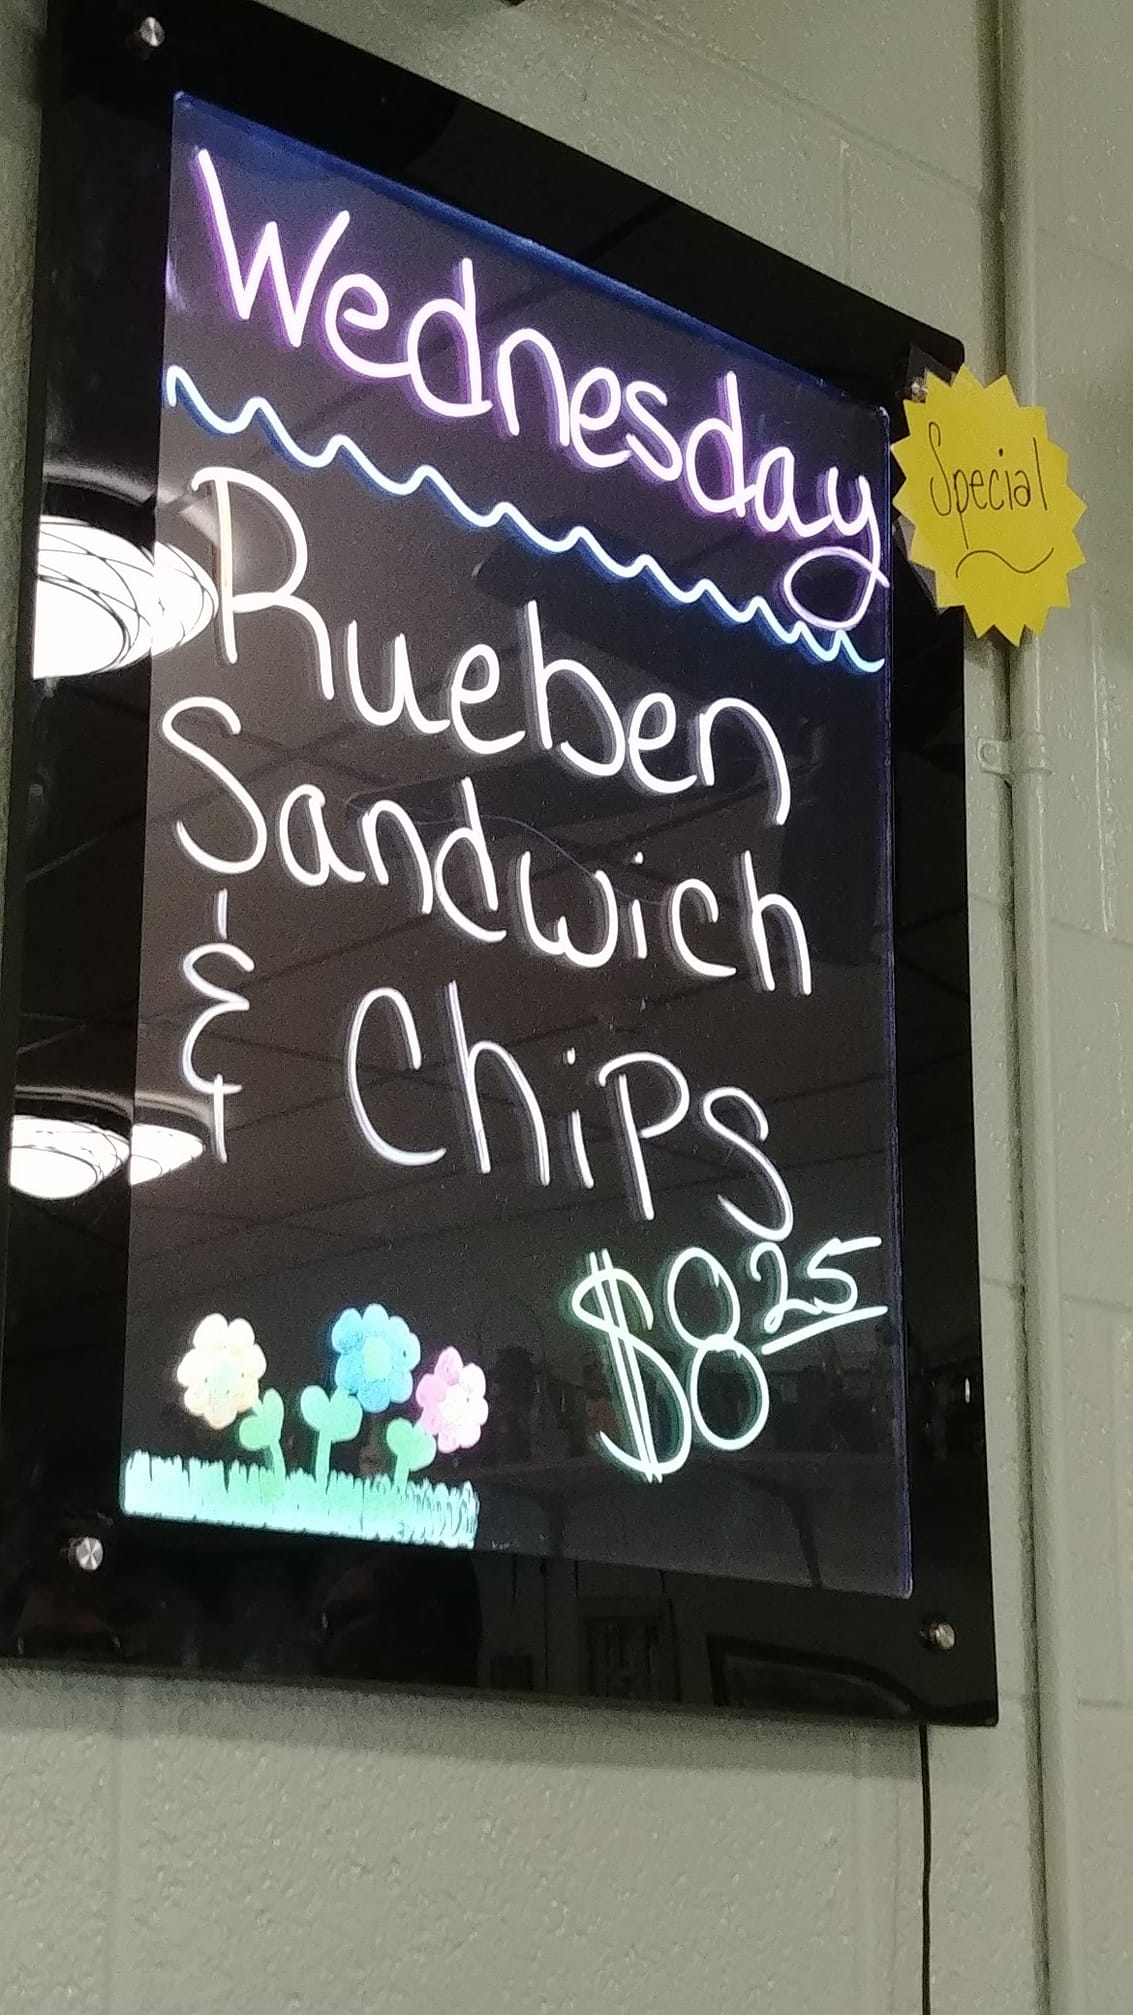 Wednesday
Special
Rueben
Sandwich
& Chips
$8 25